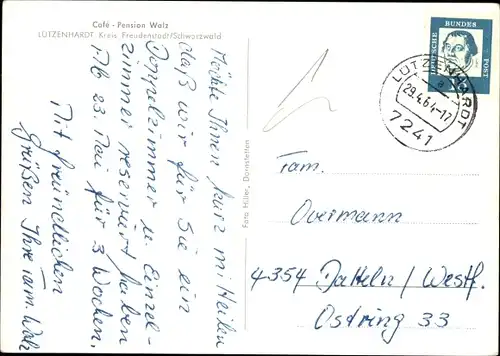 Café - Pension Walz
LÜTZENHARDT Kreis Freudenstadt/Schwarzwald
Möchte Ihnen kurz mitteilen
daß wir für Sie ein
Doppelzimmer u. Einzel-
zimmer reserviert haben
Ab 23. Mai für 3 Wochen.
Mit freundlichen
Grüßen Ihre Fam. Walz
Foto Häller, Dornstetten
DEUTSCHE BUNDESPOST
LÜTZENHARDT
a
29.4.64-17
7241
Fam.
Overmann
4354 Datteln / Westf.
Ostring 33